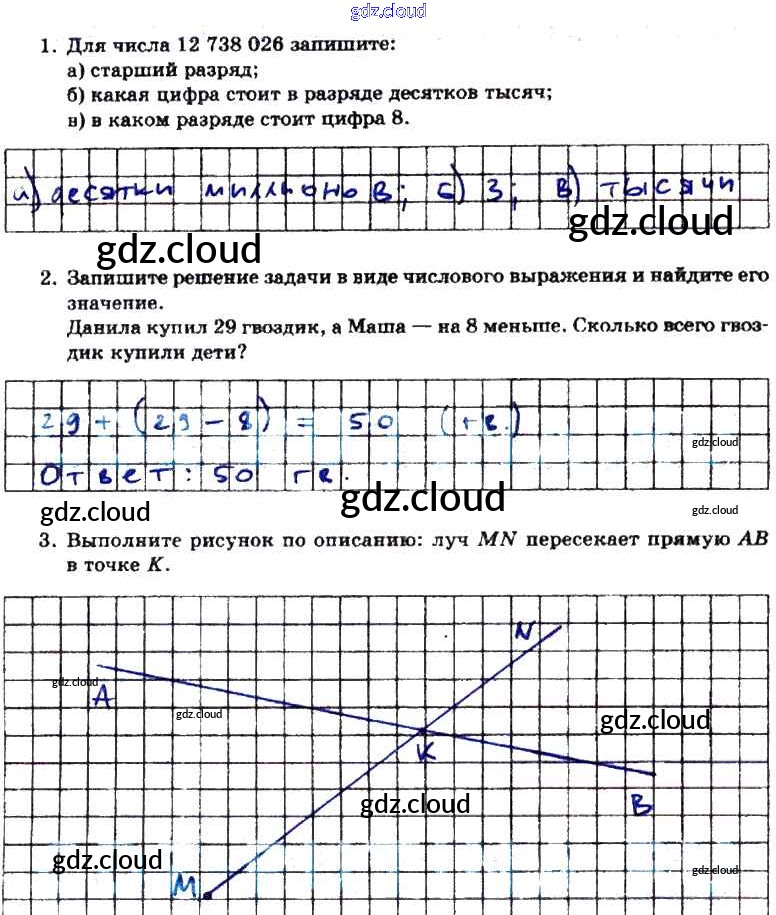 gdz.cloud
1. Для числа 12 738 026 запишите:
а) старший разряд;
б) какая цифра стоит в разряде десятков тысяч;
в) в каком разряде стоит цифра 8.
а) десятки миллионов; б) 3; в) тысячи
gdz.cloud
gdz.cloud
2. Запишите решение задачи в виде числового выражения и найдите его
значение.
Данила купил 29 гвоздик, а Маша — на 8 меньше. Сколько всего гвоз-
дик купили дети?
29 + (29 - 8) = 50 (гв.)
gdz.cloud
Ответ: 50 гв.
gdz.cloud
gdz.cloud
gdz.cloud
3. Выполните рисунок по описанию: луч MN пересекает прямую AB
в точке K.
N
gdz.cloud
A
gdz.cloud
gdz.cloud
K
gdz.cloud
B
gdz.cloud
gdz.cloud
M